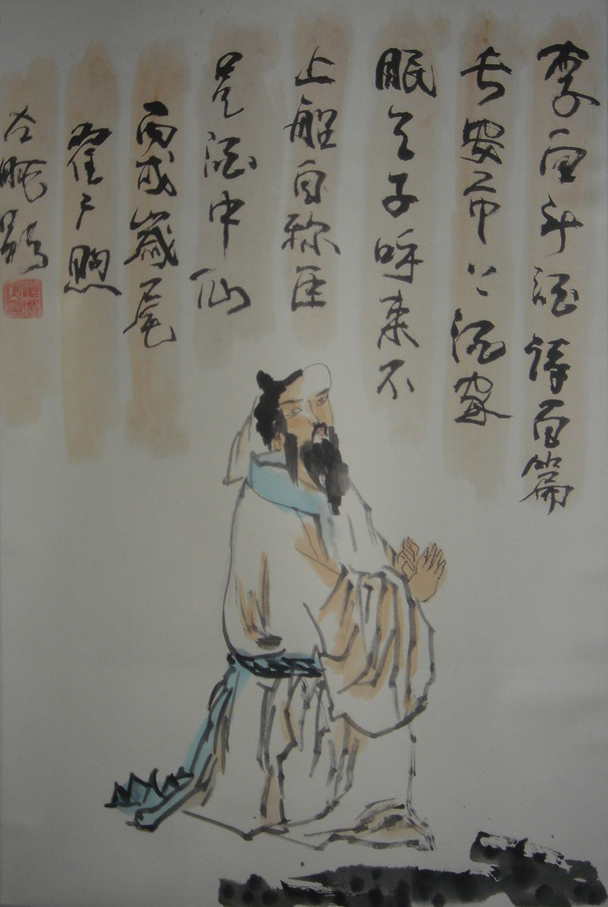 李白斗酒诗百篇
长安市上酒家
眠天子呼来不
上船自称臣
是酒中仙
丙戌歲尾
户
左腕